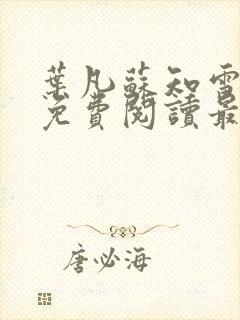 葉凡蘇知雪
免費閱讀最
唐必海